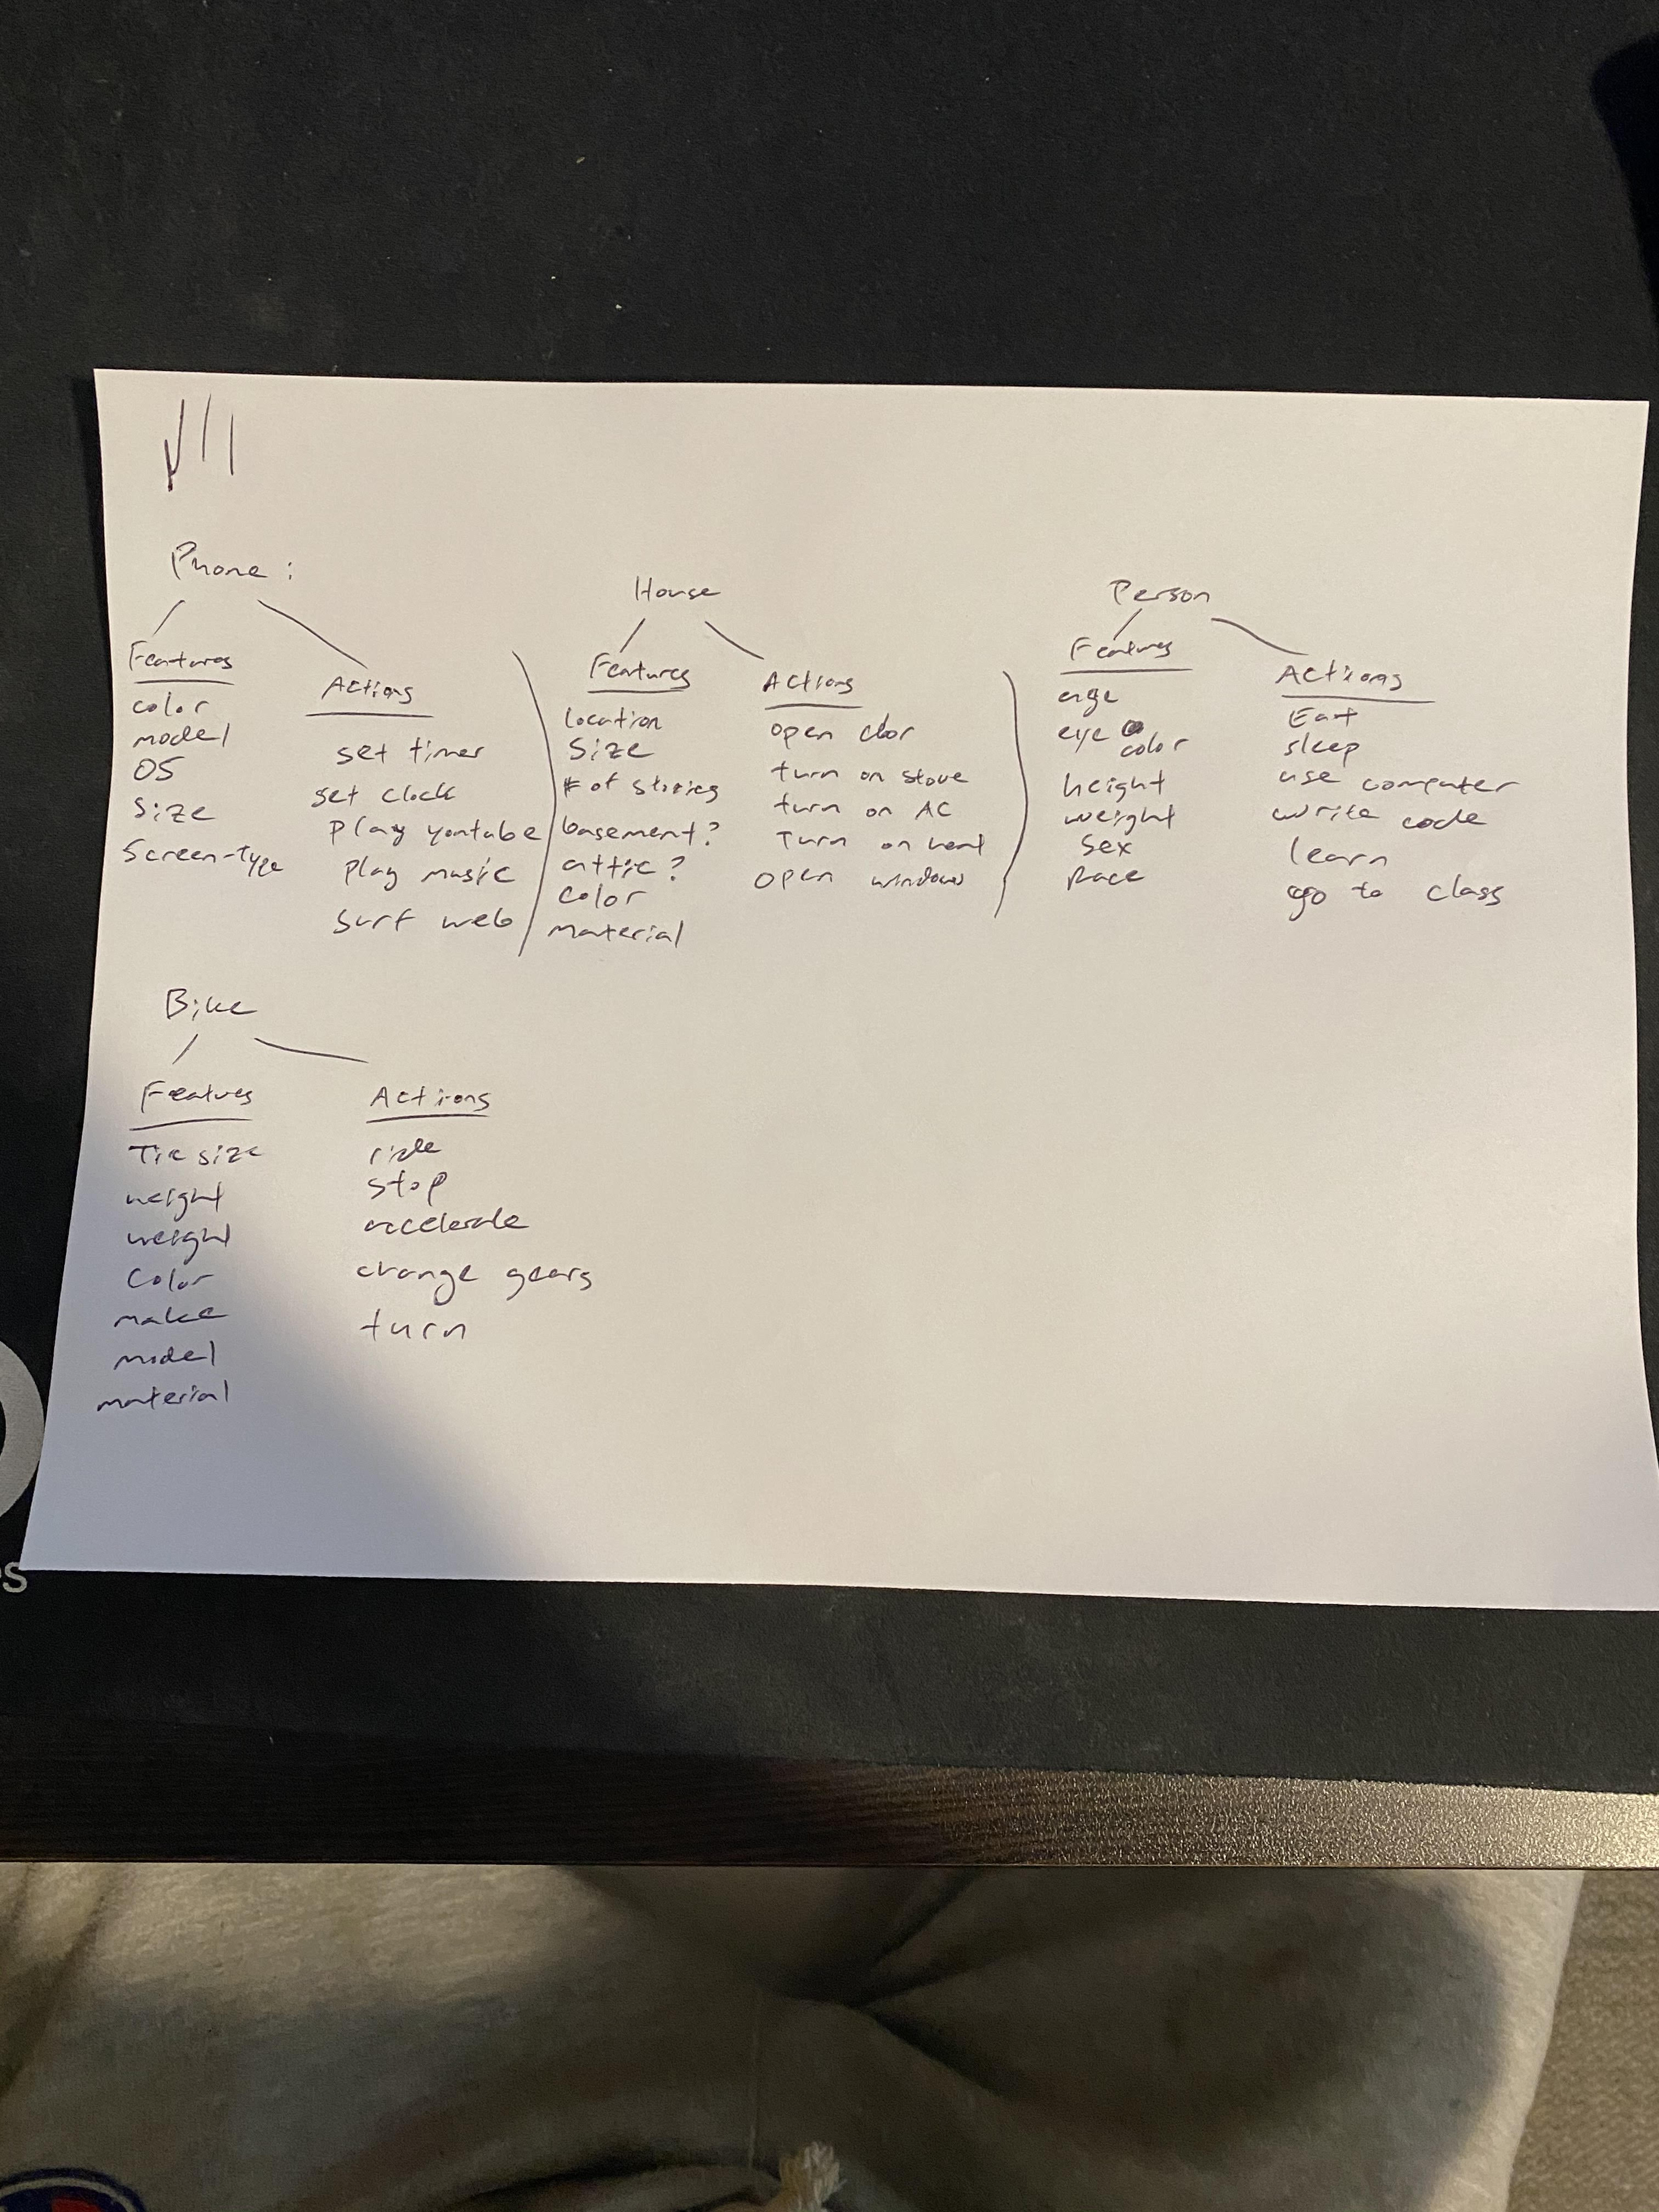 Phone :
Features
color
model
OS
Size
Screen-Type
Actions
set timer
set clock
Play youtube
Play music
Surf web
House
Features
location
Size
# of stories
basement?
attic?
color
material
Actions
open door
turn on stove
turn on AC
Turn on heat
open windows
Person
Features
age
eye color
height
weight
Sex
Race
Actions
Eat
sleep
use computer
write code
learn
go to class
Bike
Features
Tire size
height
weight
Color
make
model
material
Actions
ride
stop
accelerate
change gears
turn